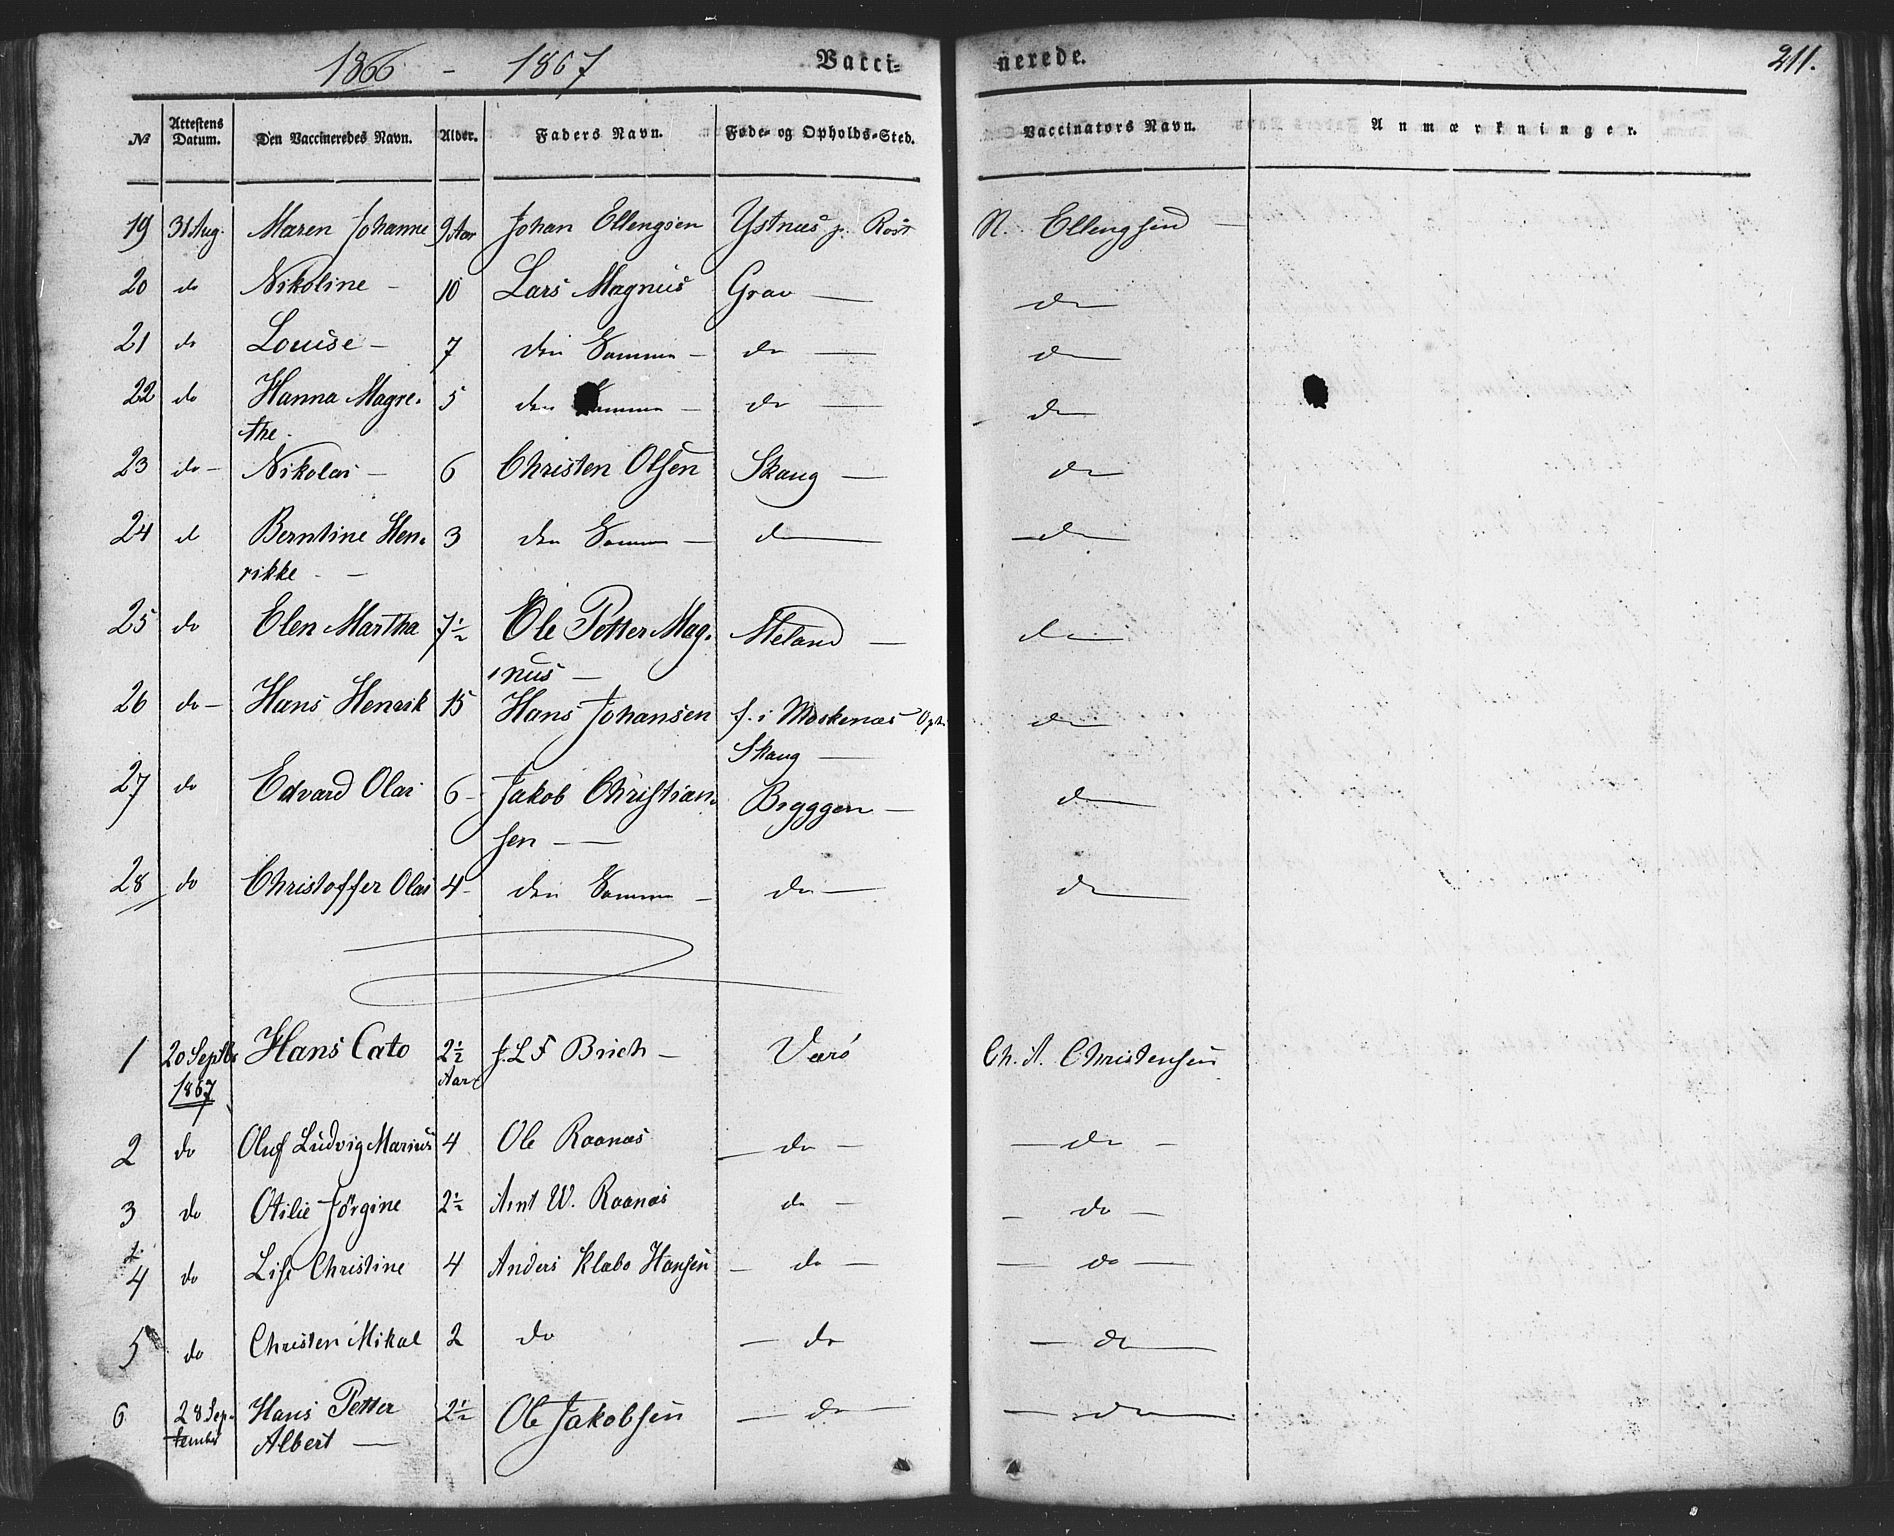 1866 - 1867 Vacci- nerede. 211.
№ Attestens Datum. Den Vaccineredes Navn. Alder. Faders Navn. Føde- og Opholds-Sted. Vaccinators Navn. Anmærkninger.
19 31 Aug. Maren Johanne 9 Aar Johan Ellengsen Ystnes p. Röst N. Ellengsen —
20 do Nikoline — 10 Lars Magnus Grav — do
21 do Louise — 7 den Samme — do — do
22 do Hanna Magre- 5 den Samme — do — do
the.
23 do — Nikolai — 6 Christen Olsen Skaug — do
24 do Berntine Hen- 3 den Samme — do — do
rikke. —
25 do Elen Martha 7½ Ole Petter Mag- Meland — do
nus —
26 do — Hans Henrik 15 Hans Johansen f. i Moskenæs Oph.
Skaug — do
27 do Edvard Olai 6 - Jakob Christian- Bryggen — do
sen — —
28 do Christoffer Olai 4 - den Samme — do — do
1 20 Septbr Hans Cato 2½ J. L F Brich — Værö Ch. A. Christensen
1867 Aar
2 do Oluf Ludvig Marius 4 Ole Raanæs — do — — do —
3 do Otilie Jörgine 2½ Arnt W. Raanæs do — — do —
4 do Lise Christine 4 Anders Klabo Hansen — do — — do —
5 do Christen Mikal 2 do — do — do —
6 28 Sep- Hans Petter 2½ Ole Jakobsen — do — — do —
tember Albert —